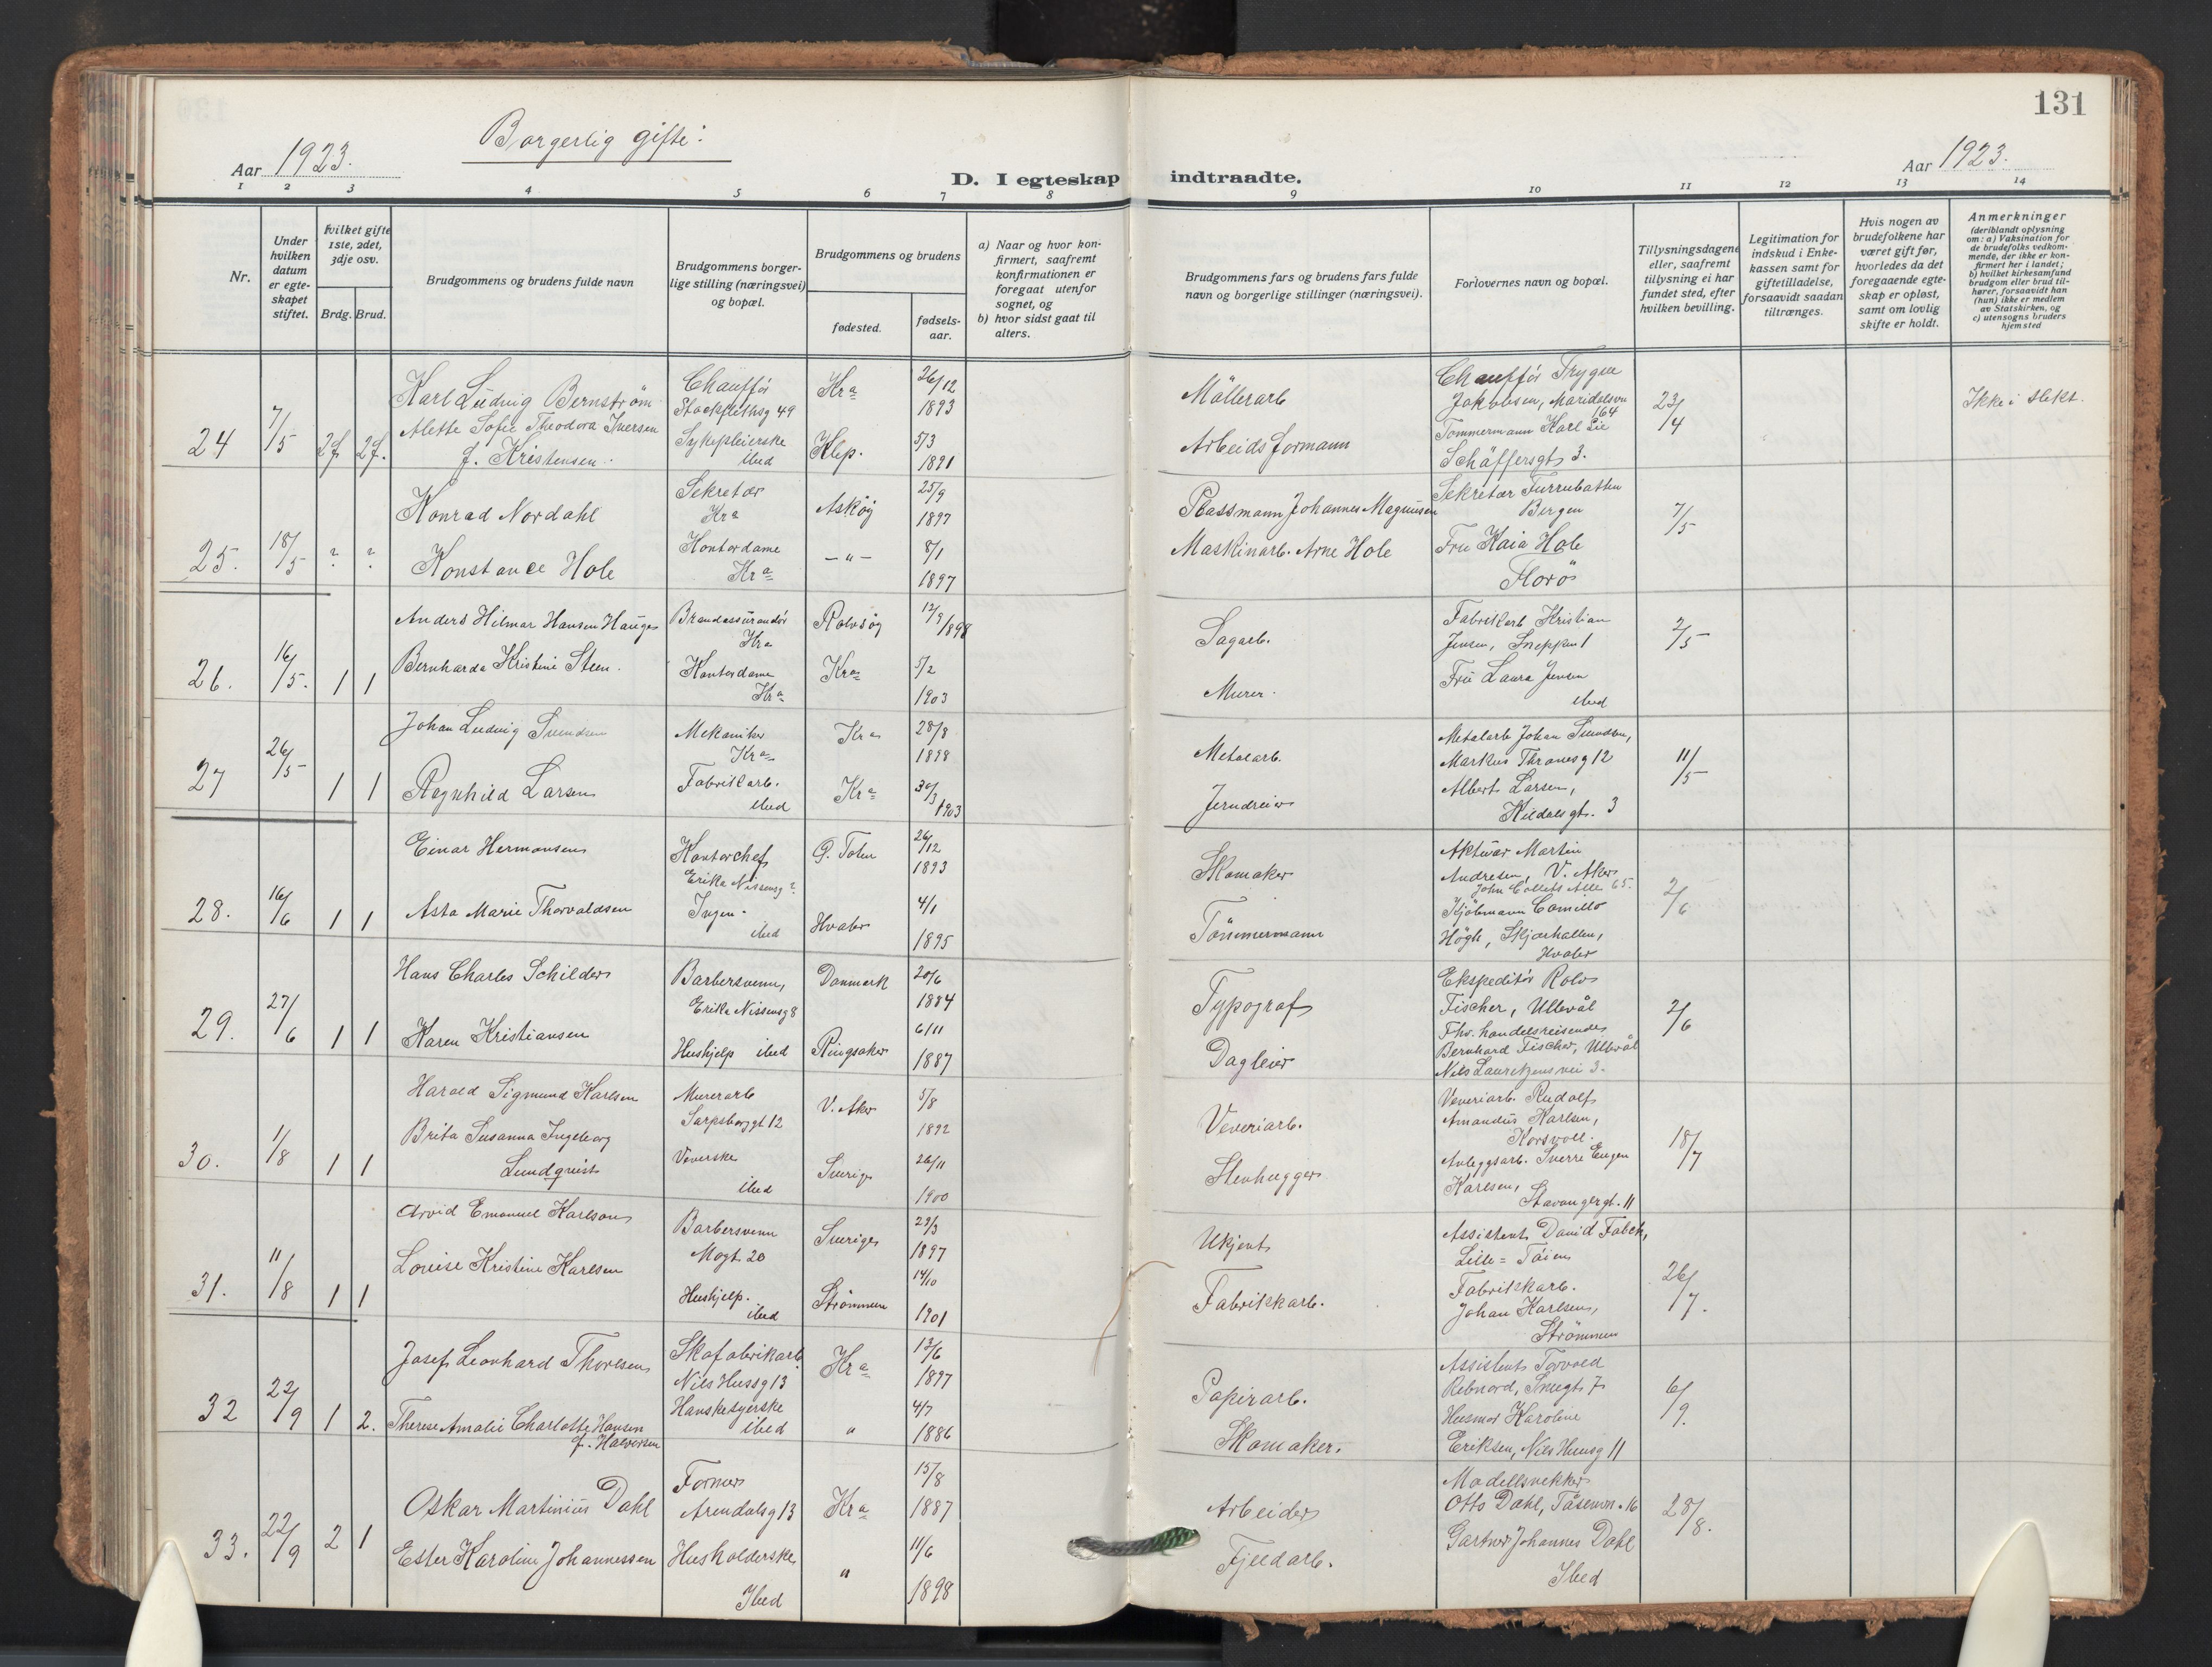 131
Borgerlig gifte:
Aar 1923.
D. I egteskap indtraadte.
Aar 1923.
1 2 3 4 5 6 7 8 9 10 11 12 13 14
Nr.
Under hvilken datum er egteskapet stiftet.
Hvilket gifte 1ste, 2det, 3dje osv.
Brdg. Brud.
Brudgommens og brudens fulde navn
Brudgommens borgerlige stilling (næringsvei) og bopæl.
Brudgommens og brudens
fødested.
fødselsaar.
a) Naar og hvor konfirmert, saafremt konfirmationen er foregaat utenfor sognet, og
b) hvor sidst gaat til alters.
Brudgommens fars og brudens fars fulde navn og borgerlige stillinger (næringsvei).
Forlovernes navn og bopæl.
Tillysningsdagene eller, saafremt tillysning ei har fundet sted, efter hvilken bevilling.
Legitimation for indskud i Enkekassen samt for giftetilladelse, forsaavidt saadan tiltrænges.
Hvis nogen av brudefolkene har været gift før, hvorledes da det foregaaende egteskap er opløst, samt om lovlig skifte er holdt.
Anmerkninger
(deriblandt oplysning om: a) Vaksination for de brudefolks vedkommende, der ikke er konfirmert her i landet; b) hvilket kirkesamfund brudgom eller brud tilhører, forsaavidt han (hun) ikke er medlem av Statskirken, og c) utensogns bruders hjemsted
24 7/5 2f 2f.
Karl Ludvig Bernström
Chauffør
Stockflethsg 49
Kra
26/12 1893
Möllerarb
Chauffør Trygve
Jakobsen, Maridalsvn 164
23/4
Ikke i slekt.
Alette Sofie Theodora Iversen
f. Kristensen.
Sykepleierske
ibid
Klep.
5/3 1891
Arbeidsformann
Tømmermann Karl Lie
Schäffersgt 3.
25. 18/5 ? ?
Konrad Nordahl
Sekretær
Kra
Askøy
25/9 1897
Plassmann Johannes Magnusen
Sekretær
Bergen
7/5
Konstance Hole
Kontordame
Kra
— " —
8/1 1897
Maskinarb. Arne Hole
Fru Kaia Hole
Florö
26. 16/5. 1 1
Anders Hilmar Hansen Hauge
Brandassurandør
Kra
Rolvsøy
12/9 1898
Sagarb.
Fabrikarb Kristian
Jensen, Sneppen 1
2/5
Bernharda Kristine Steen.
Kontordame
Kra
Kra
5/2 1903
Murer.
Fru Laura Jensen
ibid
27 26/5 1 1
Johan Ludvig Svendsen
Mekaniker
Kra
Kra
28/8 1898
Metalarb.
Metalarb Johan Svendsen,
Markus Thranesg 12
11/5
Ragnhild Larsen
Fabrikarb.
ibid
Kra
30/3 1903
Jerndreier
Albert Larsen,
Kildalsgt. 3
28. 16/6 1 1
Einar Hermansen
Kontorchef
Erika Nissensg ?
Ø. Toten
26/12 1893
Skomaker
Aktuar Martin
Andresen, V. Aker
John Colletts Alle 65.
2/6
Asta Marie Thorvaldsen
Ingen.
ibid
Hvaler
4/1 1895
Tömmermann
Kjöbmann Camillo
Högh, Skjærhallen,
Hvaler
29. 27/6 1 1
Hans Charles Schilder
Barbersvenn,
Erika Nissensg 8
Danmark
20/6 1884
Typograf
Ekspeditør Rolv
Fischer, Ullevål
2/6
Karen Kristiansen
Hushjelp ibid
Ringsaker
6/11 1887
Dagleier
Fhv. handelsreisende
Bernhard Fischer, Ullevål
Nils Lauritzens vei 3.
30. 1/8 1 1
Harald Sigmund Karlsen
Murerarb
Sarpsborggt 12
V. Aker
5/8 1892
Veveriarb.
Veveriarb. Rudolf
Amandus Karlsen,
Korsvoll.
18/7
Brita Susanna Ingeborg
Lundqvist
Veverske
ibid
Sverige
26/11 1900
Stenhugger
Anleggsarb. Sverre Eugen
Karlsen,
Stavangergt. 11
31. 11/8 1 1
Arvid Emanuel Karlson
Barbersvenn
Mogt. 20
Sverige
29/3 1897
Ukjent
Assistent David Falck,
Lille-Töien
26/7.
Louise Kristine Karlsen
Hushjelp.
ibid
Strømmen
14/10 1901
Fabrikkarb.
Fabrikkarb.
Johan Karlsen,
Strømmen
32 22/9 1 2.
Josef Leonhard Thorlsen
Skofabrikarb
Nils Husg 13
Kra
13/6 1897
Papirarb.
Assistent Torvald
Rebnord, Smugt 7
6/9.
Therese Amalie Charlotte Hansen
f. Halvorsen
Hanskesyerske
ibid
"
4/7 1886
Skomaker.
Husmor Karoline
Eriksen, Nils Huusg 11
33. 22/9 2 1
Oskar Martinius Dahl
Former
Arendalsg 13
Kra
15/8 1887
Arbeider
Modellsnekker
Otto Dahl, Tåsenvn. 16
28/8.
Ester Karoline Johannessen
Husholderske
Ibid
"
11/6 1898
Fjeldarb.
Gartner Johannes Dahl
Ibid